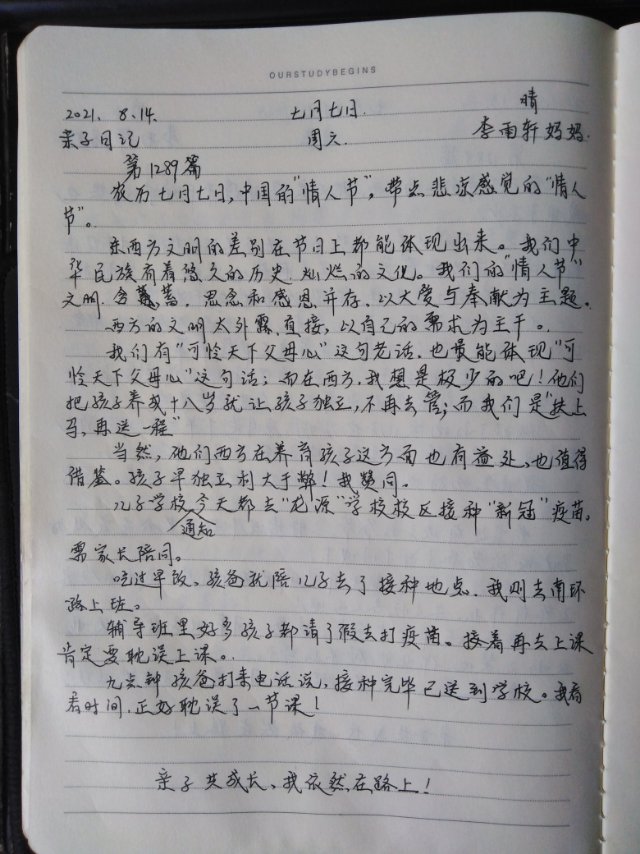 OURSTUDYBEGINS
2021. 8.14. 七月七日. 晴
亲子日记 周六 李雨轩妈妈.
第1289篇
农历七月七日,中国的"情人节",带点悲凉感觉的"情人
节"。
东西方文明的差别在节日上都能体现出来。我们中
华民族有着悠久的历史 灿烂的文化。我们的"情人节"
文明.含蓄. 思念和感恩并存.以大爱与奉献为主题。
西方的文明太外露.直接,以自己的需求为主干。
我们有"可怜天下父母心"这句老话.也最能体现"可
怜天下父母心"这句话;而在西方,我想是极少的吧!他们
把孩子养成十八岁就让孩子独立,不再去管;而我们是"扶上
马,再送一程"
当然,他们西方在养育孩子这方面也有益处、也值得
借鉴。孩子早独立利大于弊!我赞同。
儿子学校今天都去"龙源"学校校区接种"新冠"疫苗。
通知
需家长陪同。
吃过早饭、孩爸就陪儿子去了接种地点.我则去南环
路上班。
辅导班里好多孩子都请了假去打疫苗。接着再去上课
肯定要耽误上课。
九点钟孩爸打来电话说,接种完毕已送到学校。我看
看时间.正好耽误了一节课!
亲子共成长、我依然在路上!